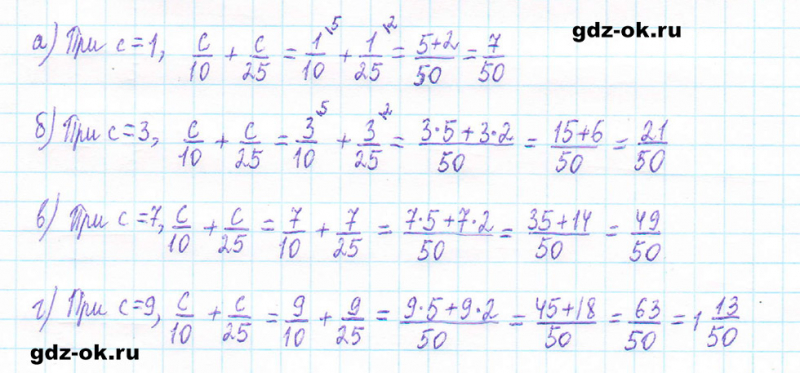 gdz-ok.ru
а) При c=1, c/10 + c/25 = 1/10 ⁵ + 1/25 ² = 5+2/50 = 7/50
б) При c=3, c/10 + c/25 = 3/10 ⁵ + 3/25 ² = 3·5+3·2/50 = 15+6/50 = 21/50
в) При c=7, c/10 + c/25 = 7/10 + 7/25 = 7·5+7·2/50 = 35+14/50 = 49/50
г) При c=9, c/10 + c/25 = 9/10 + 9/25 = 9·5+9·2/50 = 45+18/50 = 63/50 = 1 13/50
gdz-ok.ru